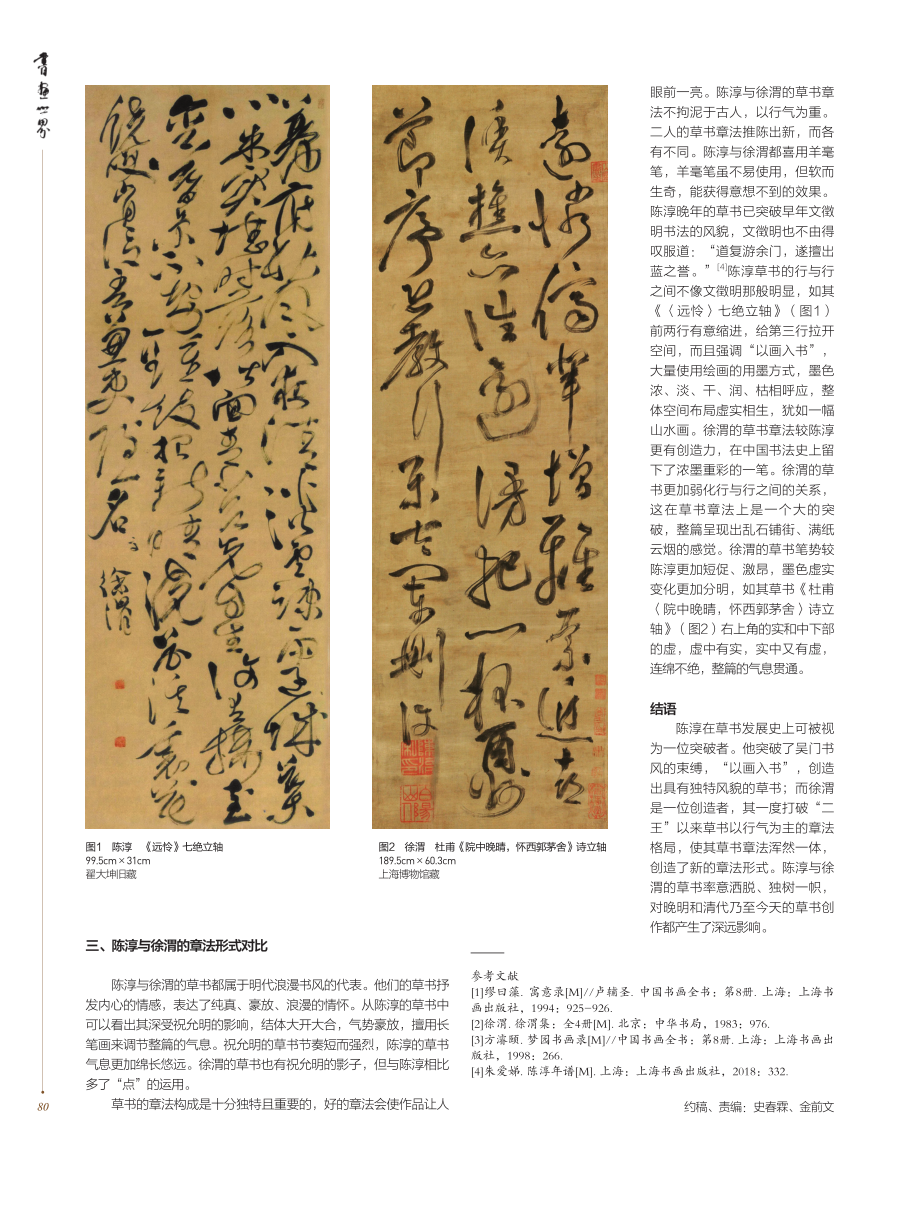 書畫世界
幕府秋風日夜清淡雲疎雨過城葉
心朱實堪時落階面青苔先自生復有樓臺
銜暮景不勞鐘鼓報新晴浣花溪裏花
饒笑肯信吾兼吏隱名
徐渭
遠憐儔輩增離索近喜
漁樵亦往還謾把一杯酬
節序且教行樂
图1　陈淳　《远怜》七绝立轴
99.5cm×31cm
翟大坤旧藏
图2　徐渭　杜甫《院中晚晴，怀西郭茅舍》诗立轴
189.5cm×60.3cm
上海博物馆藏
三、陈淳与徐渭的章法形式对比
陈淳与徐渭的草书都属于明代浪漫书风的代表。他们的草书抒
发内心的情感，表达了纯真、豪放、浪漫的情怀。从陈淳的草书中
可以看出其深受祝允明的影响，结体大开大合，气势豪放，擅用长
笔画来调节整篇的气息。祝允明的草书节奏短而强烈，陈淳的草书
气息更加绵长悠远。徐渭的草书也有祝允明的影子，但与陈淳相比
多了“点”的运用。
草书的章法构成是十分独特且重要的，好的章法会使作品让人
眼前一亮。陈淳与徐渭的草书章
法不拘泥于古人，以行气为重。
二人的草书章法推陈出新，而各
有不同。陈淳与徐渭都喜用羊毫
笔，羊毫笔虽不易使用，但软而
生奇，能获得意想不到的效果。
陈淳晚年的草书已突破早年文徵
明书法的风貌，文徵明也不由得
叹服道：“道复游余门，遂擅出
蓝之誉。”[4]陈淳草书的行与行
之间不像文徵明那般明显，如其
《〈远怜〉七绝立轴》（图1）
前两行有意缩进，给第三行拉开
空间，而且强调“以画入书”，
大量使用绘画的用墨方式，墨色
浓、淡、干、润、枯相呼应，整
体空间布局虚实相生，犹如一幅
山水画。徐渭的草书章法较陈淳
更有创造力，在中国书法史上留
下了浓墨重彩的一笔。徐渭的草
书更加弱化行与行之间的关系，
这在草书章法上是一个大的突
破，整篇呈现出乱石铺街、满纸
云烟的感觉。徐渭的草书笔势较
陈淳更加短促、激昂，墨色虚实
变化更加分明，如其草书《杜甫
〈院中晚晴，怀西郭茅舍〉诗立
轴》（图2）右上角的实和中下部
的虚，虚中有实，实中又有虚，
连绵不绝，整篇的气息贯通。
结语
陈淳在草书发展史上可被视
为一位突破者。他突破了吴门书
风的束缚，“以画入书”，创造
出具有独特风貌的草书；而徐渭
是一位创造者，其一度打破“二
王”以来草书以行气为主的章法
格局，使其草书章法浑然一体，
创造了新的章法形式。陈淳与徐
渭的草书率意洒脱、独树一帜，
对晚明和清代乃至今天的草书创
作都产生了深远影响。
参考文献
[1]缪曰藻. 寓意录[M]//卢辅圣. 中国书画全书：第8册. 上海：上海书
画出版社，1994：925-926.
[2]徐渭. 徐渭集：全4册[M]. 北京：中华书局，1983：976.
[3]方濬颐. 梦园书画录[M]//中国书画全书：第8册. 上海：上海书画出
版社，1998：266.
[4]朱爱娣. 陈淳年谱[M]. 上海：上海书画出版社，2018：332.
约稿、责编：史春霖、金前文
80